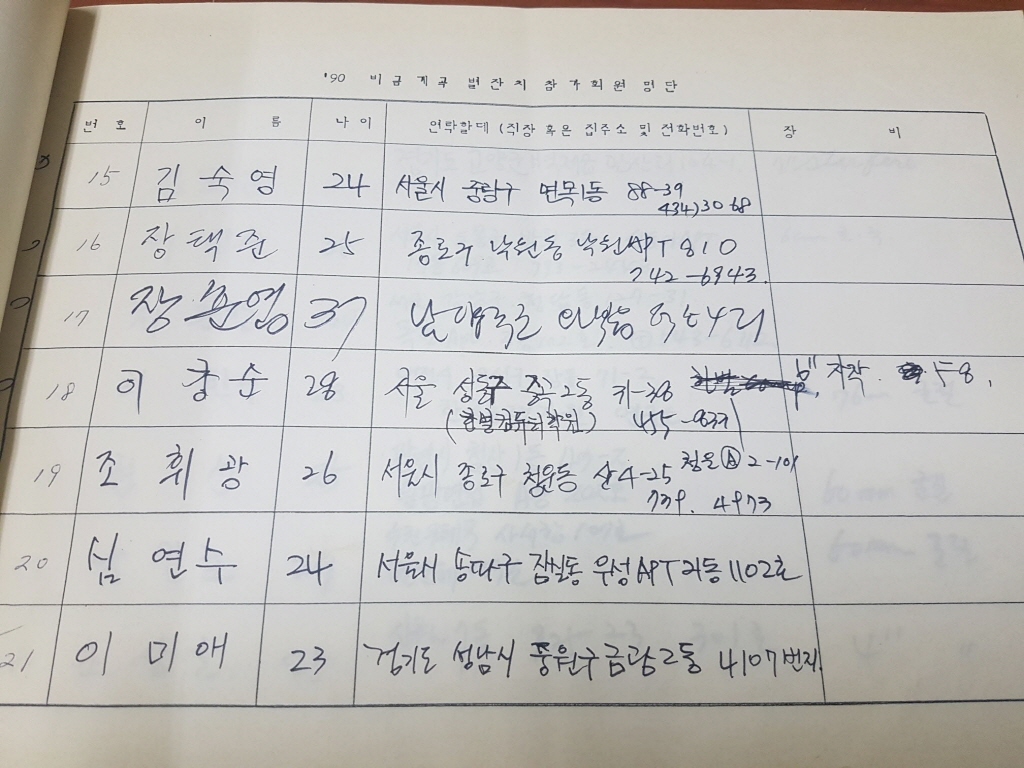 '90 비금계곡 별잔치 참가회원 명단
번호 이름 나이 연락할데 (직장 혹은 집주소 및 전화번호) 장비
15 김숙영 24 서울시 중랑구 면목1동 88-39
434)3068
16 장택준 25 종로구 낙원동 낙원APT 810
742-6943.
17 장 영 37
18 이창순 28 서울 성동구 2동 8" 자작. F8,
(한별컴퓨터학원) 455-
19 조휘광 26 서울시 종로구 청운동 산4-25 청운Ⓐ 2-101
739. 4973
20 심연수 24 서울시 송파구 잠실동 우성APT 동 1102호
21 이미애 23 경기도 성남시 중원구 금광2동 4107번지.